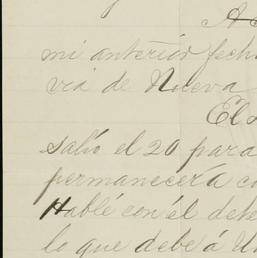 A
mi anterior fech
via de Nueva
El
salió el 20 para
permanecerá co
Hablé con él dete
lo que debe á U